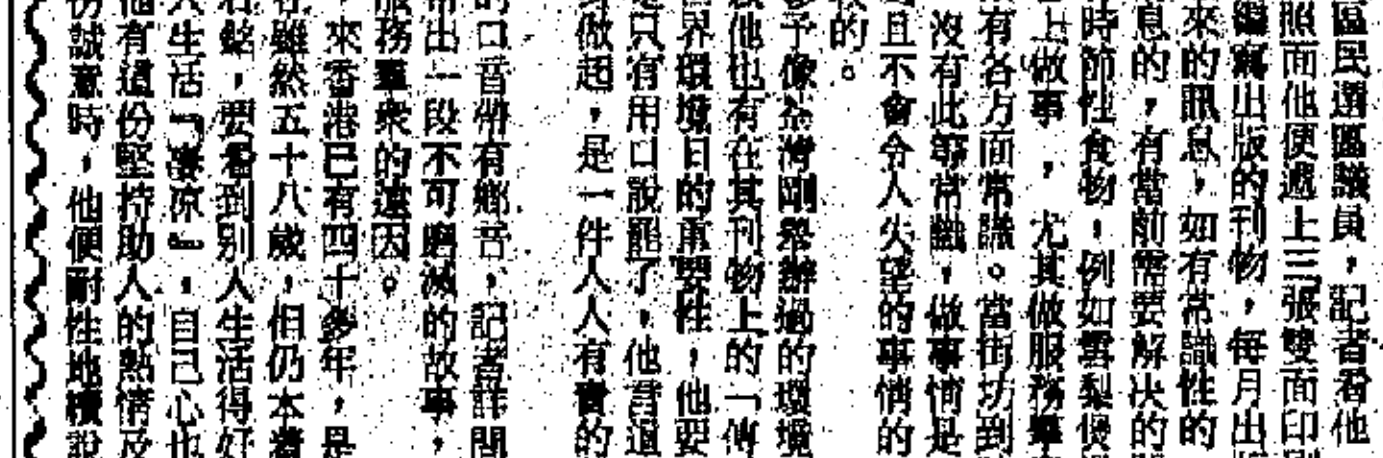 區民選區議員，記者看他
照面他便遞上三張雙面印
編寫出版的刊物，每月出
來的訊息，如有常識性的
息的，有當前需要解決的
時節性食物，例如雪梨
上做事，尤其做服務羣
有各方面常識。當街坊到
沒有此等常識，做事情是
且不會令人失望的事情的
的。
予像荃灣剛舉辦過的環境
他也有在其刊物上的「傳
界環境日的重要性，他要
只有用口說罷了，他言還
做起，是一件人人有責的
的口音帶有鄉音，記者詳問
出一段不可磨滅的故事，
服務羣衆的遠因。
來香港已有四十多年，是
雖然五十八歲，但仍本着
右銘，要看到別人生活得好
人生活『凄凉』，自己心也
他有這份堅持助人的熱情及
份誠意時，他便耐性地續說